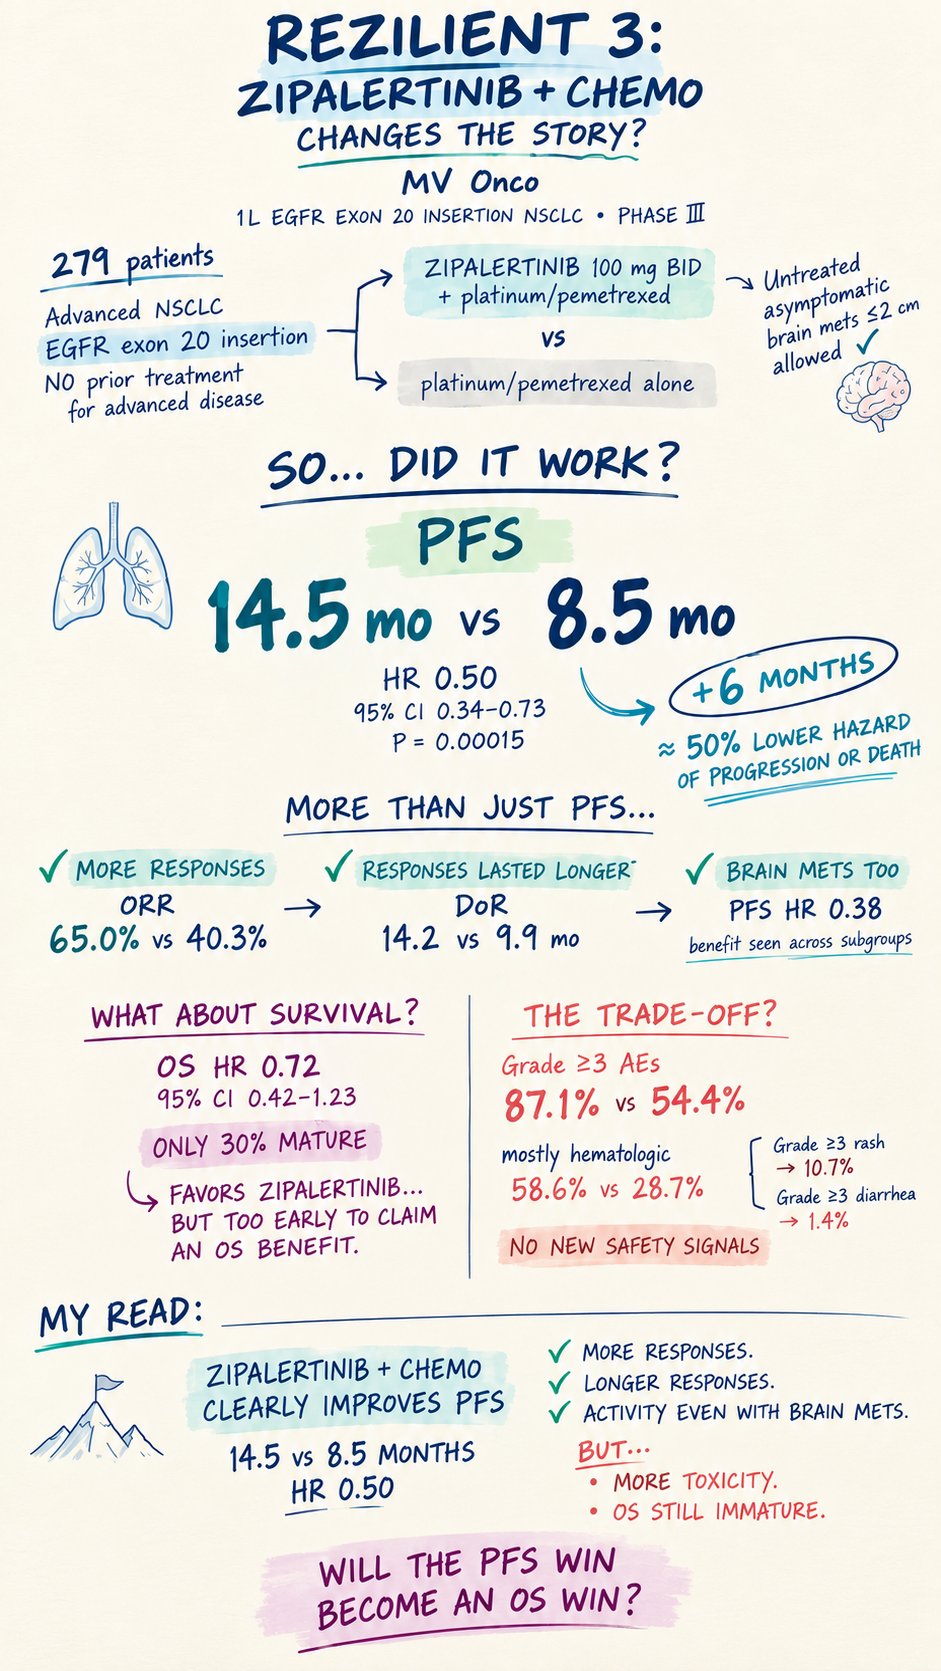 REZILIENT 3:
ZIPALERTINIB + CHEMO
CHANGES THE STORY?
MV Onco
1L EGFR EXON 20 INSERTION NSCLC • PHASE III
279 patients
Advanced NSCLC
EGFR exon 20 insertion
NO prior treatment
for advanced disease
ZIPALERTINIB 100 mg BID
+ platinum/pemetrexed
VS
platinum/pemetrexed alone
Untreated
asymptomatic
brain mets ≤2 cm
allowed ✓
SO... DID IT WORK?
PFS
14.5 mo vs 8.5 mo
HR 0.50
95% CI 0.34–0.73
P = 0.00015
+6 MONTHS
≈ 50% LOWER HAZARD
OF PROGRESSION OR DEATH
MORE THAN JUST PFS...
✓ MORE RESPONSES
ORR
65.0% vs 40.3%
✓ RESPONSES LASTED LONGER
DoR
14.2 vs 9.9 mo
✓ BRAIN METS TOO
PFS HR 0.38
benefit seen across subgroups
WHAT ABOUT SURVIVAL?
OS HR 0.72
95% CI 0.42–1.23
ONLY 30% MATURE
FAVORS ZIPALERTINIB...
BUT TOO EARLY TO CLAIM
AN OS BENEFIT.
THE TRADE-OFF?
Grade ≥3 AEs
87.1% vs 54.4%
mostly hematologic
58.6% vs 28.7%
Grade ≥3 rash
→ 10.7%
Grade ≥3 diarrhea
→ 1.4%
NO NEW SAFETY SIGNALS
MY READ:
ZIPALERTINIB + CHEMO
CLEARLY IMPROVES PFS
14.5 vs 8.5 MONTHS
HR 0.50
✓ MORE RESPONSES.
✓ LONGER RESPONSES.
✓ ACTIVITY EVEN WITH BRAIN METS.
BUT...
• MORE TOXICITY.
• OS STILL IMMATURE.
WILL THE PFS WIN
BECOME AN OS WIN?